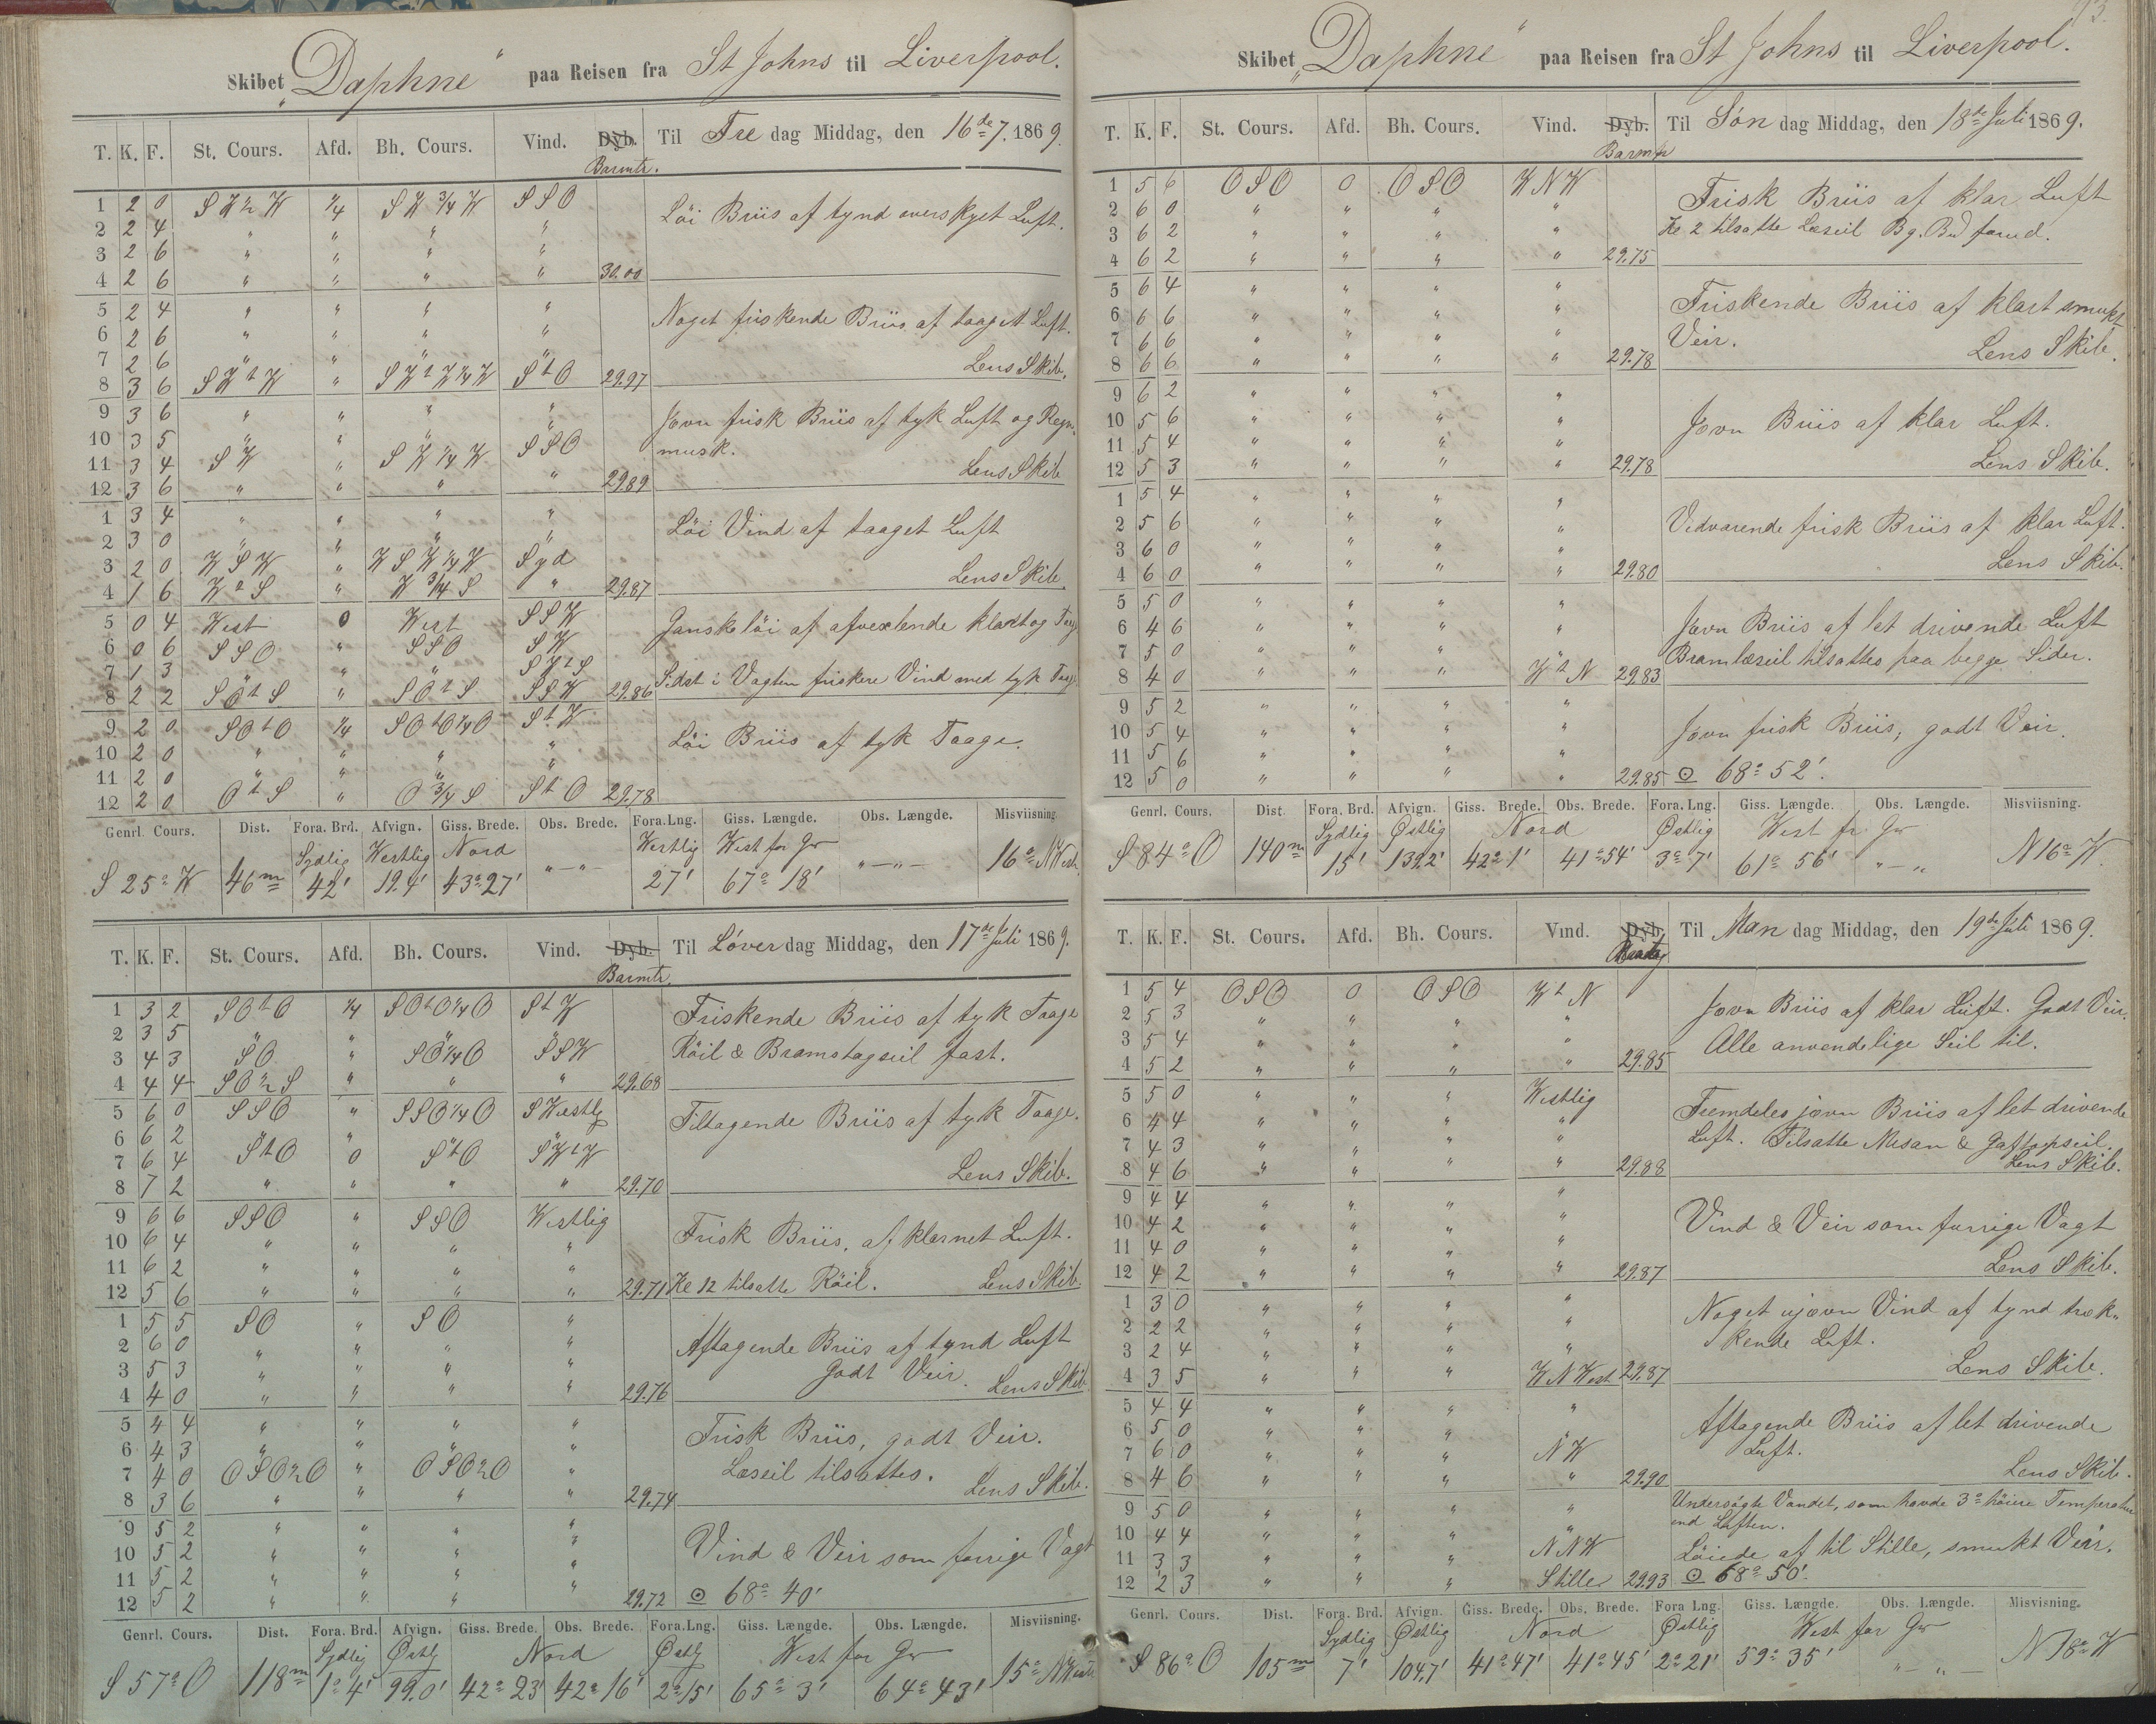 Skibet „Daphne“ paa Reisen fra St Johns til Liverpool.
T. K. F. St. Cours. Afd. Bh. Cours. Vind. Dyb. Barmtr. Til Fre dag Middag, den 16de 7. 1869.
1 2 0 S W ½ W ¼ S W ¾ W S S O Löi Briis af tynd overskyet Luft.
2 2 4 " " " "
3 2 6 " " " "
4 2 6 " " " " 30.00
5 2 4 " " " " Noget friskende Briis af taaget Luft.
6 2 6 " " " "
7 2 6 " " " " Lens Skib.
8 3 6 S W t W " S W t W ¼ W S t O 29.97
9 3 6 " " " " Jovn frisk Briis af tyk Luft og Regn-
10 3 5 " " " " musk.
11 3 4 S W " S W ¼ W S S O Lens Skib
12 3 6 " " " " 29.89
1 3 4 " " " " Löi Vind af taaget Luft
2 3 0 " " " "
3 2 0 W S W " W S W ¼ W Syd Lens Skib.
4 1 6 W t S " W ¾ S " 29.87
5 0 4 West 0 West S S W Ganske löi af afvexlende klart og Taag
6 0 6 S S O " S S O S W
7 1 3 " " " S W t S Sidst i Vagten friskere Vind med tyk Taag
8 2 2 S O t S " S O t S S S W 29.86
9 2 0 S O t O ¼ S O t O ¼ O S t W Löi Briis af tyk Taage.
10 2 0 " " " "
11 2 0 " " " "
12 2 0 O t S " O ¾ S S t O 29.78
Genrl. Cours. Dist. Fora. Brd. Afvign. Giss. Brede. Obs. Brede. Fora. Lng. Giss. Længde. Obs. Længde. Misviisning.
Sydlig Westlig Nord Westlig West for Gr
S 25° W 46m 42' 19.4' 43° 27' "—"— 27' 67° 18' "—"— 16° N West
T. K. F. St. Cours. Afd. Bh. Cours. Vind. Dyb. Barmtr. Til Löver dag Middag, den 17de Juli 1869.
1 3 2 S O t O ¼ S O t O ¼ O S t W Friskende Briis af tyk Taage
2 3 5 " " " "
3 4 3 S O " S O ¼ O S S W Röil & Bramstagseil fast.
4 4 4 S O ½ S " " " 29.68
5 6 0 S S O " S S O ¼ O S Westlg Tiltagende Briis af tyk Taage.
6 6 2 " " " "
7 6 4 S t O 0 S t O S W t W Lens Skib.
8 7 2 " " " " 29.70
9 6 6 S S O " S S O Westlig Frisk Briis, af klarnet Luft.
10 6 4 " " " "
11 6 2 " " " "
12 5 6 " " " " 29.71 Kl 12 tilsatte Röil. Lens Skib.
1 5 5 S O " S O " Aftagende Briis af tynd Luft
2 6 0 " " " "
3 5 3 " " " " Godt Veir.
4 4 0 " " " " 29.76 Lens Skib
5 4 4 " " " " Frisk Briis, godt Veir.
6 4 3 " " " "
7 4 0 O S O ½ O " O S O ½ O " Læseil tilsattes.
8 3 6 " " " " 29.74 Lens Skib.
9 5 2 " " " " Vind & Veir som forrige Vagt
10 5 2 " " " "
11 5 2 " " " "
12 5 2 " " " " 29.72 ⊙ 68° 40'
Genrl. Cours. Dist. Fora. Brd. Afvign. Giss. Brede. Obs. Brede. Fora. Lng. Giss. Længde. Obs. Længde. Misviisning.
Sydlig Østlg Nord Østlg West for Gr
S 57° O 118m 1° 4' 99.0' 42° 23' 42° 16' 2° 15' 65° 3' 64° 43' 15° N West
93.
Skibet „Daphne“ paa Reisen fra St Johns til Liverpool.
T. K. F. St. Cours. Afd. Bh. Cours. Vind. Dyb. Barmtr Til Søn dag Middag, den 18de Juli 1869.
1 5 6 O S O 0 O S O W N W Frisk Briis af klar Luft
2 6 0 " " " " Kl 2 tilsatte Læseil Bg. Bd forud.
3 6 2 " " " "
4 6 2 " " " " 29.75
5 6 4 " " " " Friskende Briis af klart smukt
6 6 6 " " " " Veir.
7 6 6 " " " "
8 6 6 " " " " 29.78 Lens Skib.
9 6 2 " " " " Jovn Briis af klar Luft.
10 5 6 " " " "
11 5 4 " " " "
12 5 3 " " " " 29.78 Lens Skib.
1 5 4 " " " " Vedvarende frisk Briis af klar Luft.
2 5 6 " " " "
3 6 0 " " " "
4 6 0 " " " " 29.80 Lens Skib.
5 5 0 " " " " Jovn Briis af let drivende Luft
6 4 6 " " " "
7 5 0 " " " " Bramlæseil tilsattes paa begge Sider.
8 4 0 " " " W t N 29.83
9 5 2 " " " " Jovn frisk Briis, godt Veir.
10 5 4 " " " "
11 5 6 " " " "
12 5 0 " " " " 29.85 ⊙ 68° 52'.
Genrl. Cours. Dist. Fora. Brd. Afvign. Giss. Brede. Obs. Brede. Fora. Lng. Giss. Længde. Obs. Længde. Misviisning.
Sydlig Østlig Nord Østlig West fr Gr
S 84° O 140m 15' 139.2' 42° 1' 41° 54' 3° 7' 61° 56' "—" N 16° W.
T. K. F. St. Cours. Afd. Bh. Cours. Vind. Dyb. Til Man dag Middag, den 19de Juli 1869.
1 5 4 O S O 0 O S O W t N Jovn Briis af klar Luft. Godt Veir.
2 5 3 " " " "
3 5 4 " " " " Alle anvendelige Seil til.
4 5 2 " " " " 29.85
5 5 0 " " " Westlig Fremdeles jovn Briis af let drivende
6 4 4 " " " " Luft. Tilsatte Mesan & Gaftopseil.
7 4 3 " " " "
8 4 6 " " " " 29.88 Lens Skib.
9 4 4 " " " " Vind & Veir som forrige Vagt
10 4 2 " " " "
11 4 0 " " " "
12 4 2 " " " " 29.87 Lens Skib.
1 3 0 " " " " Noget ujovn Vind af tynd træk-
2 2 2 " " " " kende Luft.
3 2 4 " " " "
4 3 5 " " " W N West 29.87 Lens Skib.
5 4 4 " " " " Aftagende Briis af let drivende
6 5 0 " " " " Luft.
7 6 0 " " " N W
8 4 6 " " " " 29.90 Lens Skib.
9 5 0 " " " " Undersøgte Vandet, som havde 3° höiere Temperatur
10 4 4 " " " " end Luften.
11 3 3 " " " N N W Löiede af til Stille, smukt Veir.
12 2 3 " " " Stille 29.93 ⊙ 68° 50'.
Genrl. Cours. Dist. Fora. Brd. Afvign. Giss. Brede. Obs. Brede. Fora Lng. Giss. Længde. Obs. Længde. Misvisning.
Sydlig Østlig Nord Østlig West for Gr
S 86° O 105m 7' 104.7' 41° 47' 41° 45' 2° 21' 59° 35' "—"— N 18° W